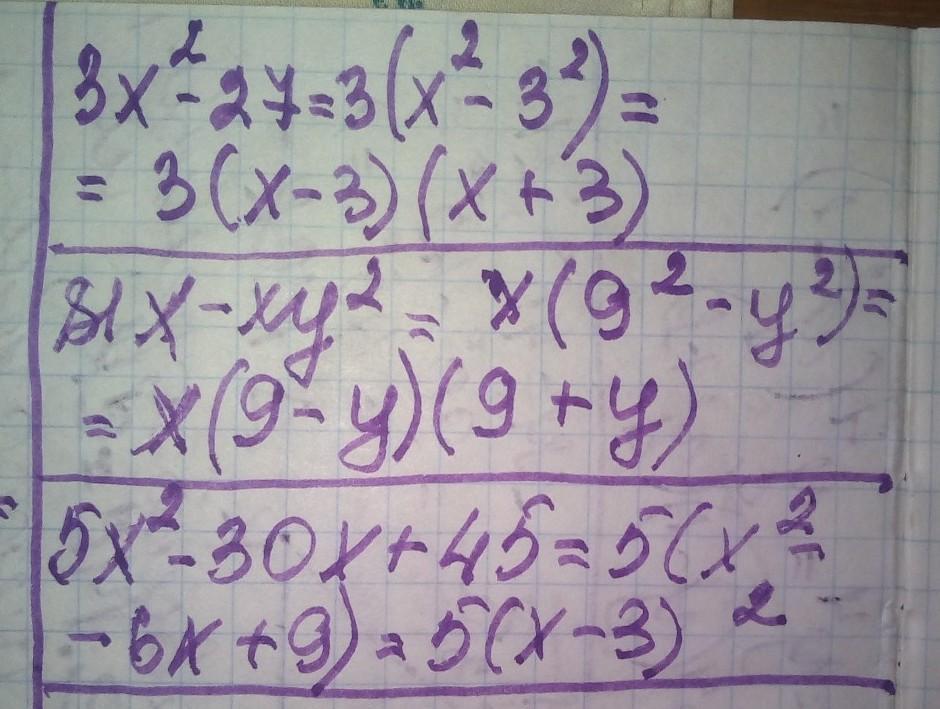 3x²-27=3(x²-3²)=
= 3(x-3)(x+3)
81x-xy²= x(9²-y²)=
= x(9-y)(9+y)
5x²-30x+45=5(x²-
-6x+9)=5(x-3)²